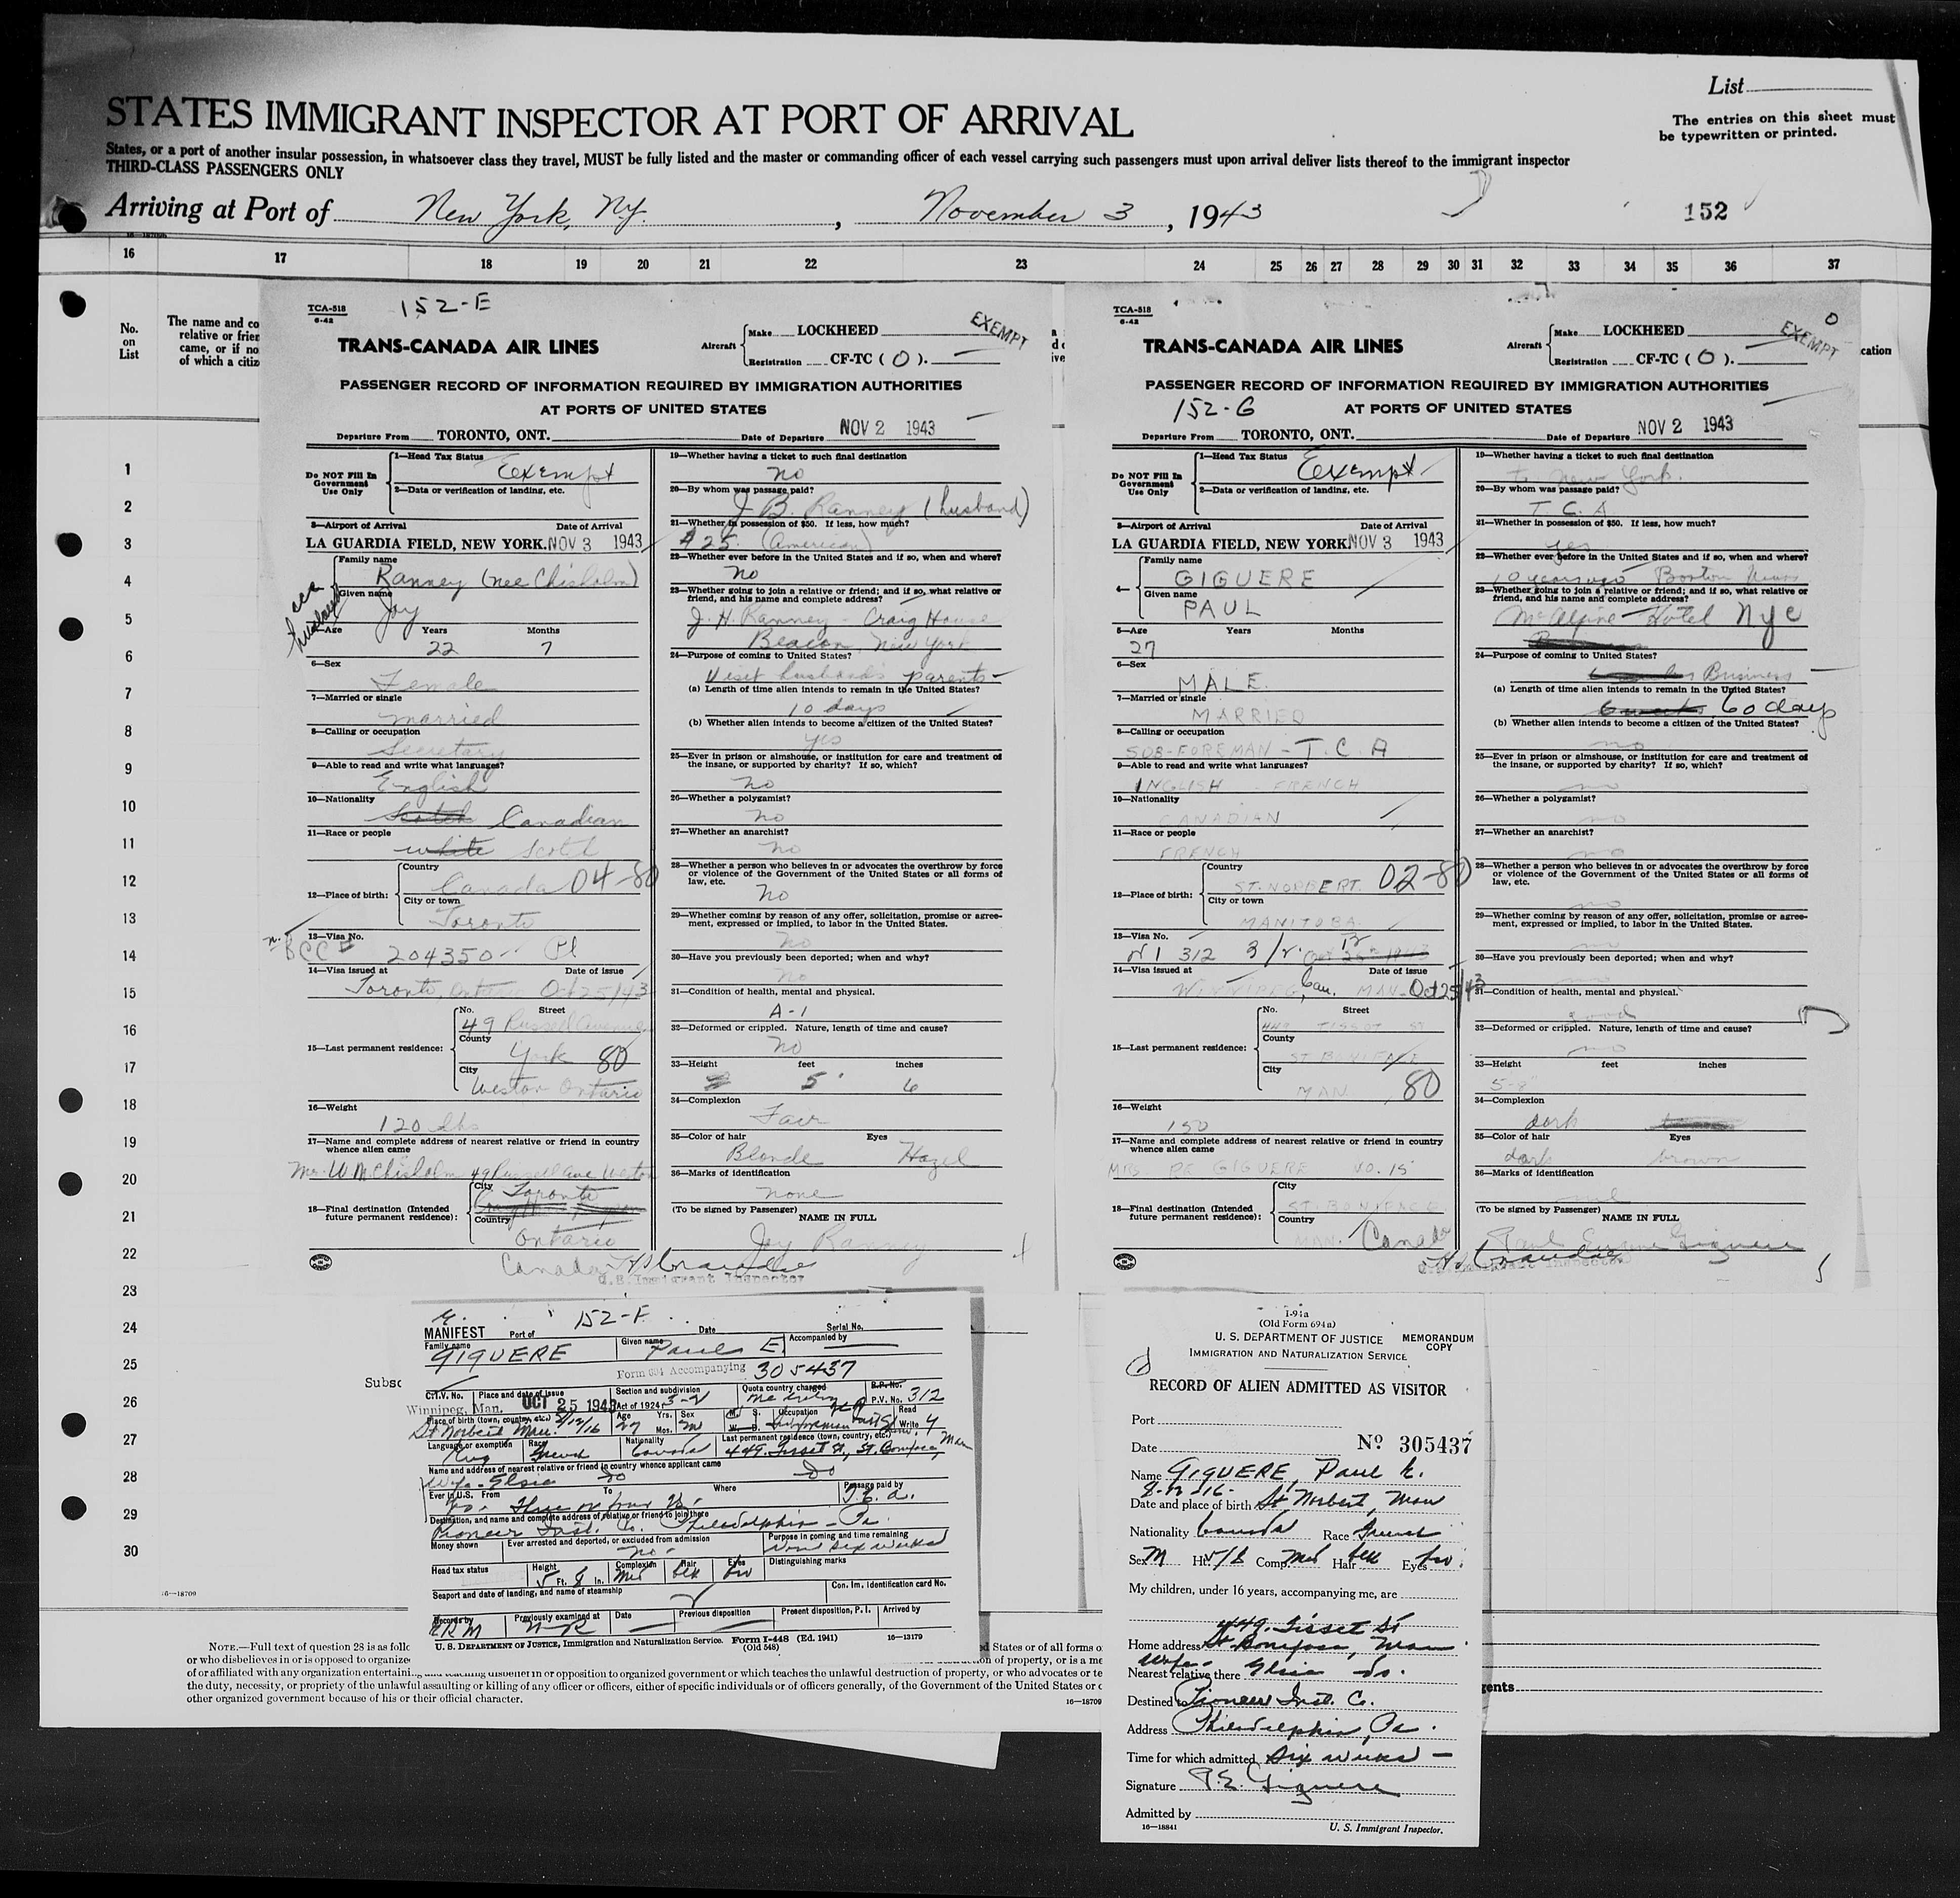 List
The entries on this sheet must
be typewritten or printed.
STATES IMMIGRANT INSPECTOR AT PORT OF ARRIVAL
States, or a port of another insular possession, in whatsoever class they travel, MUST be fully listed and the master or commanding officer of each vessel carrying such passengers must upon arrival deliver lists thereof to the immigrant inspector
THIRD-CLASS PASSENGERS ONLY
Arriving at Port of New York, N.Y., November 3, 1943
152
16 17 18 19 20 21 22 23 24 25 26 27 28 29 30 31 32 33 34 35 36 37
No. on List
The name and co
relative or frien
came, or if no
of which a citiz
cation
1
2
3
4
5
6
7
8
9
10
11
12
13
14
15
16
17
18
19
20
21
22
23
24
25
26
27
28
29
30
Subsc
TCA-518
6-42
152-E
EXEMPT
TRANS-CANADA AIR LINES
Aircraft Make LOCKHEED
Registration CF-TC (O).
PASSENGER RECORD OF INFORMATION REQUIRED BY IMMIGRATION AUTHORITIES
AT PORTS OF UNITED STATES
Departure From TORONTO, ONT. Date of Departure NOV 2 1943
Do NOT Fill In Government Use Only
1—Head Tax Status Exempt
2—Data or verification of landing, etc.
3—Airport of Arrival Date of Arrival
LA GUARDIA FIELD, NEW YORK. NOV 3 1943
Family name
Ranney (nee Chisholm)
Given name
Joy
acc husband
5—Age Years Months
22 7
6—Sex
Female
7—Married or single
married
8—Calling or occupation
Secretary
9—Able to read and write what languages?
English
10—Nationality
Scotch Canadian
11—Race or people
white Scotch
12—Place of birth: Country
Canada 04-80
City or town
Toronto
13—Visa No.
BCC 204350 Pl
14—Visa issued at Date of issue
Toronto, Ontario Oct 25/43
15—Last permanent residence: No. Street
49 Russell Avenue
County
York 80
City
Weston Ontario
16—Weight
120 lbs
17—Name and complete address of nearest relative or friend in country
whence alien came
Mr. W M Chisholm 49 Russell Ave Weston
18—Final destination (Intended
future permanent residence):
City Toronto
Country
Ontario
Canada
U.S. Immigrant Inspector
19—Whether having a ticket to such final destination
no
20—By whom was passage paid?
J. B. Ranney (husband)
21—Whether in possession of $50. If less, how much?
$25. (American)
22—Whether ever before in the United States and if so, when and where?
no
23—Whether going to join a relative or friend; and if so, what relative or
friend, and his name and complete address?
J. H. Ranney - Craig House
Beacon, New York
24—Purpose of coming to United States?
Visit husbands parents
(a) Length of time alien intends to remain in the United States?
10 days
(b) Whether alien intends to become a citizen of the United States?
yes
25—Ever in prison or almshouse, or institution for care and treatment of
the insane, or supported by charity? If so, which?
no
26—Whether a polygamist?
no
27—Whether an anarchist?
no
28—Whether a person who believes in or advocates the overthrow by force
or violence of the Government of the United States or all forms of
law, etc.
no
29—Whether coming by reason of any offer, solicitation, promise or agree-
ment, expressed or implied, to labor in the United States.
no
30—Have you previously been deported; when and why?
no
31—Condition of health, mental and physical.
A-1
32—Deformed or crippled. Nature, length of time and cause?
no
33—Height feet inches
5' 6
34—Complexion
Fair
35—Color of hair Eyes
Blonde Hazel
36—Marks of identification
none
(To be signed by Passenger) NAME IN FULL
Joy Ranney
TCA-518
6-42
EXEMPT
TRANS-CANADA AIR LINES
Aircraft Make LOCKHEED
Registration CF-TC (O).
PASSENGER RECORD OF INFORMATION REQUIRED BY IMMIGRATION AUTHORITIES
152-G AT PORTS OF UNITED STATES
Departure From TORONTO, ONT. Date of Departure NOV 2 1943
Do NOT Fill In Government Use Only
1—Head Tax Status Exempt
2—Data or verification of landing, etc.
3—Airport of Arrival Date of Arrival
LA GUARDIA FIELD, NEW YORK NOV 3 1943
4— Family name
GIGUERE
Given name
PAUL
5—Age Years Months
27
6—Sex
MALE.
7—Married or single
MARRIED
8—Calling or occupation
SUB-FOREMAN - T. C. A
9—Able to read and write what languages?
INGLISH - FRENCH
10—Nationality
CANADIAN
11—Race or people
FRENCH
12—Place of birth: Country
ST. NORBERT. 02-80
City or town
MANITOBA
13—Visa No.
312 3/2
14—Visa issued at Date of issue
WINNIPEG, Can. MAN. Oct 25/43
15—Last permanent residence: No. Street
449 TISSOT ST
County
ST BONIFACE
City
MAN. 80
16—Weight
150
17—Name and complete address of nearest relative or friend in country
whence alien came
MRS PE GIGUERE NO. 15
18—Final destination (Intended
future permanent residence):
City
ST. BONIFACE
Country
MAN. Canada
19—Whether having a ticket to such final destination
to New York.
20—By whom was passage paid?
T. C. A
21—Whether in possession of $50. If less, how much?
yes
22—Whether ever before in the United States and if so, when and where?
10 years ago Boston
23—Whether going to join a relative or friend; and if so, what relative or
friend, and his name and complete address?
McAlpine Hotel NYC
24—Purpose of coming to United States?
Business
(a) Length of time alien intends to remain in the United States?
6 weeks 60 days
(b) Whether alien intends to become a citizen of the United States?
no
25—Ever in prison or almshouse, or institution for care and treatment of
the insane, or supported by charity? If so, which?
no
26—Whether a polygamist?
no
27—Whether an anarchist?
no
28—Whether a person who believes in or advocates the overthrow by force
or violence of the Government of the United States or all forms of
law, etc.
no
29—Whether coming by reason of any offer, solicitation, promise or agree-
ment, expressed or implied, to labor in the United States.
no
30—Have you previously been deported; when and why?
no
31—Condition of health, mental and physical.
good
32—Deformed or crippled. Nature, length of time and cause?
no
33—Height feet inches
5-8"
34—Complexion
dark
35—Color of hair Eyes
dark brown
36—Marks of identification
nil
(To be signed by Passenger) NAME IN FULL
Paul Eugene Giguere
Immigrant Inspector
152-F
MANIFEST Port of Date Serial No.
Family name Given name Accompanied by
GIGUERE Paul E.
Form 694 Accompanying 305437
C.I.V. No. Place and date of issue Section and subdivision Quota country charged R.P. No.
Winnipeg, Man. OCT 25 1943 Act of 1924: 3-2 P.V. No. 312
Place of birth (town, country, etc.) Age Yrs. Mos. Sex M. S. W. D. Occupation Read Write
St Norbert Man. 8/12/16 27 M
Language or exemption Race Nationality Last permanent residence (town, country, etc.)
French Canada 449 Tisset St, St. Boniface, Man
Name and address of nearest relative or friend in country whence applicant came
Wife - Elsie Do Do
Ever in U.S. From To Where Passage paid by
T.C.A.
Destination, and name and complete address of relative or friend to join there
Pioneer Inst. Co. Philadelphia - Pa.
Money shown Ever arrested and deported, or excluded from admission Purpose in coming and time remaining
no - six weeks
Head tax status Height Complexion Hair Eyes Distinguishing marks
5 Ft. 8 In. Med blk bro
Seaport and date of landing, and name of steamship Con. Im. Identification card No.
Records by Previously examined at Date Previous disposition Present disposition, P. I. Arrived by
U. S. DEPARTMENT OF JUSTICE, Immigration and Naturalization Service. Form I-448 (Ed. 1941)
(Old 548)
16—13179
I-94a
(Old Form 694a)
U. S. DEPARTMENT OF JUSTICE MEMORANDUM COPY
IMMIGRATION AND NATURALIZATION SERVICE
RECORD OF ALIEN ADMITTED AS VISITOR
Port
Date No 305437
Name GIGUERE, Paul E.
8-12-16-
Date and place of birth St Norbert, Man
Nationality Canada Race French
Sex M Ht. 5/8 Comp. Med Hair blk Eyes bro.
My children, under 16 years, accompanying me, are
449. Tisset St
Home address St. Boniface, Man
Wife -
Nearest relative there Elsie Do.
Destined to Pioneer Inst. Co.
Address Philadelphia, Pa.
Time for which admitted six weeks —
Signature P.E. Giguere
Admitted by
16—18841 U. S. Immigrant Inspector.
16—18709
NOTE.—Full text of question 28 is as follo
or who disbelieves in or is opposed to organize
of or affiliated with any organization entertaini
the duty, necessity, or propriety of the unlawful assaulting or killing of any officer or officers, either of specific individuals or of officers generally, of the Government of the United States or o
other organized government because of his or their official character.
d States or of all forms o
ction of property, or is a me
teaching disbelief in or opposition to organized government or which teaches the unlawful destruction of property, or who advocates or te
16—18709
gents